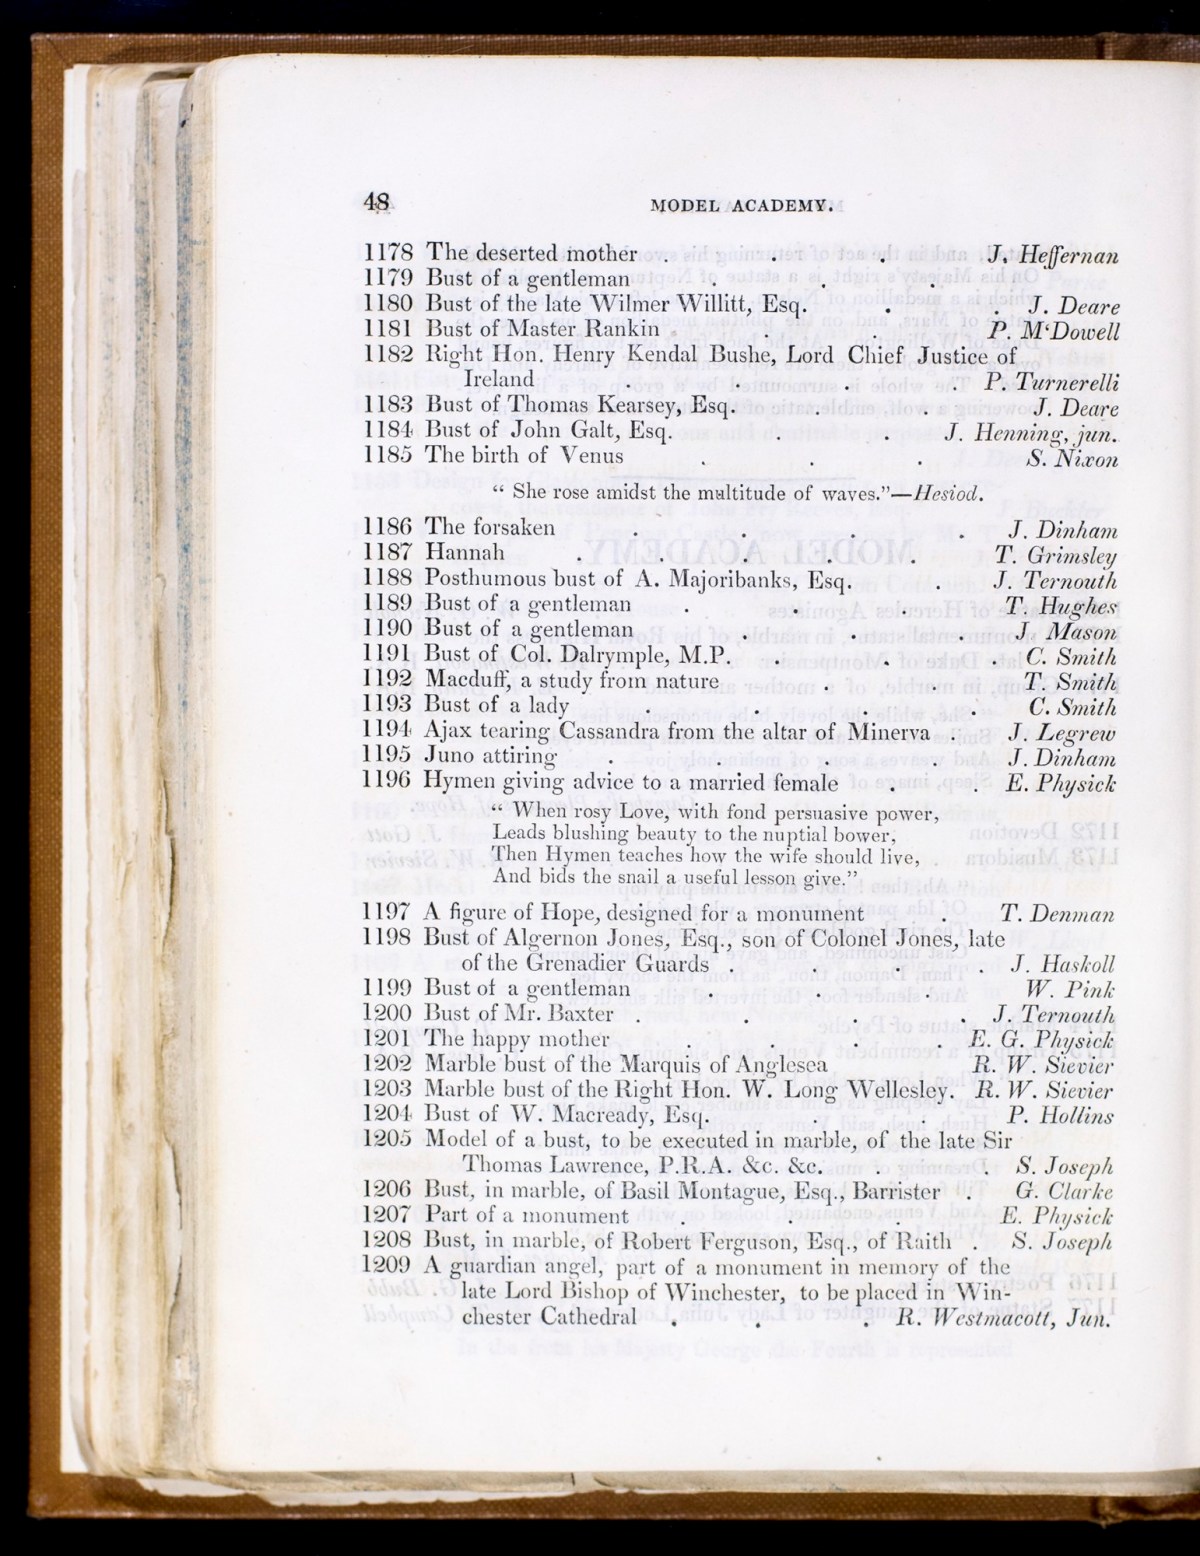 48
MODEL ACADEMY.
1178 The deserted mother . . . J. Heffernan
1179 Bust of a gentleman . . .
1180 Bust of the late Wilmer Willitt, Esq. . . J. Deare
1181 Bust of Master Rankin . . . P. M‘Dowell
1182 Right Hon. Henry Kendal Bushe, Lord Chief Justice of
Ireland . . . . P. Turnerelli
1183 Bust of Thomas Kearsey, Esq. . . . J. Deare
1184 Bust of John Galt, Esq. . . J. Henning, jun.
1185 The birth of Venus . . . S. Nixon
“ She rose amidst the multitude of waves.”—Hesiod.
1186 The forsaken . . . . J. Dinham
1187 Hannah . . . . . T. Grimsley
1188 Posthumous bust of A. Majoribanks, Esq. . J. Ternouth
1189 Bust of a gentleman . . . T. Hughes
1190 Bust of a gentleman . . . J. Mason
1191 Bust of Col. Dalrymple, M.P. . . . C. Smith
1192 Macduff, a study from nature . . T. Smith
1193 Bust of a lady . . . . C. Smith
1194 Ajax tearing Cassandra from the altar of Minerva . J. Legrew
1195 Juno attiring . . . . J. Dinham
1196 Hymen giving advice to a married female . . E. Physick
“ When rosy Love, with fond persuasive power,
Leads blushing beauty to the nuptial bower,
Then Hymen teaches how the wife should live,
And bids the snail a useful lesson give.”
1197 A figure of Hope, designed for a monument . T. Denman
1198 Bust of Algernon Jones, Esq., son of Colonel Jones, late
of the Grenadier Guards . . . . J. Haskoll
1199 Bust of a gentleman . . . W. Pink
1200 Bust of Mr. Baxter . . . . J. Ternouth
1201 The happy mother . . . . E. G. Physick
1202 Marble bust of the Marquis of Anglesea R. W. Sievier
1203 Marble bust of the Right Hon. W. Long Wellesley. R. W. Sievier
1204 Bust of W. Macready, Esq. . . . P. Hollins
1205 Model of a bust, to be executed in marble, of the late Sir
Thomas Lawrence, P.R.A. &c. &c. . . S. Joseph
1206 Bust, in marble, of Basil Montague, Esq., Barrister . G. Clarke
1207 Part of a monument . . . E. Physick
1208 Bust, in marble, of Robert Ferguson, Esq., of Raith . S. Joseph
1209 A guardian angel, part of a monument in memory of the
late Lord Bishop of Winchester, to be placed in Win-
chester Cathedral . . . R. Westmacott, Jun.